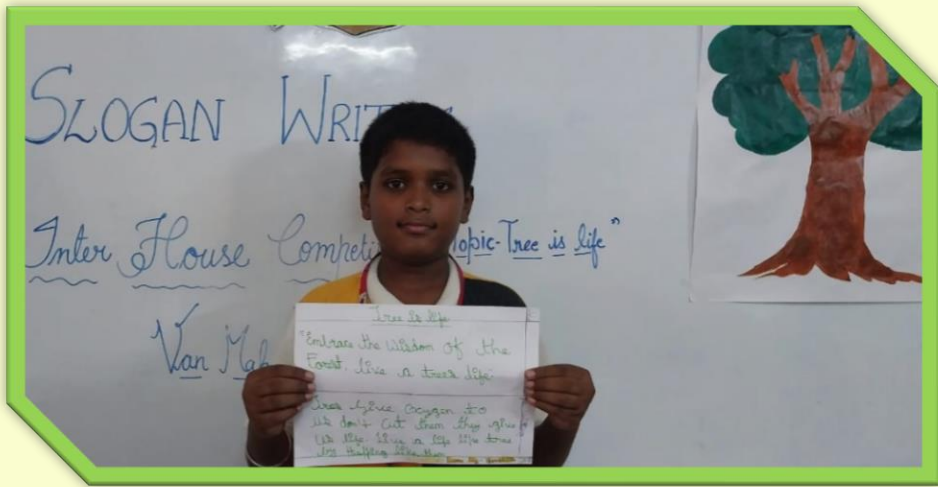 SLOGAN WRIT
Inter House Competi opic-Tree is life"
Van Mah
Tree is life
"Embrace the wisdom of the
Forest, live a trees life"
Trees give oxygen to
us don't cut them they give
us life live a life like tree
by helping like them